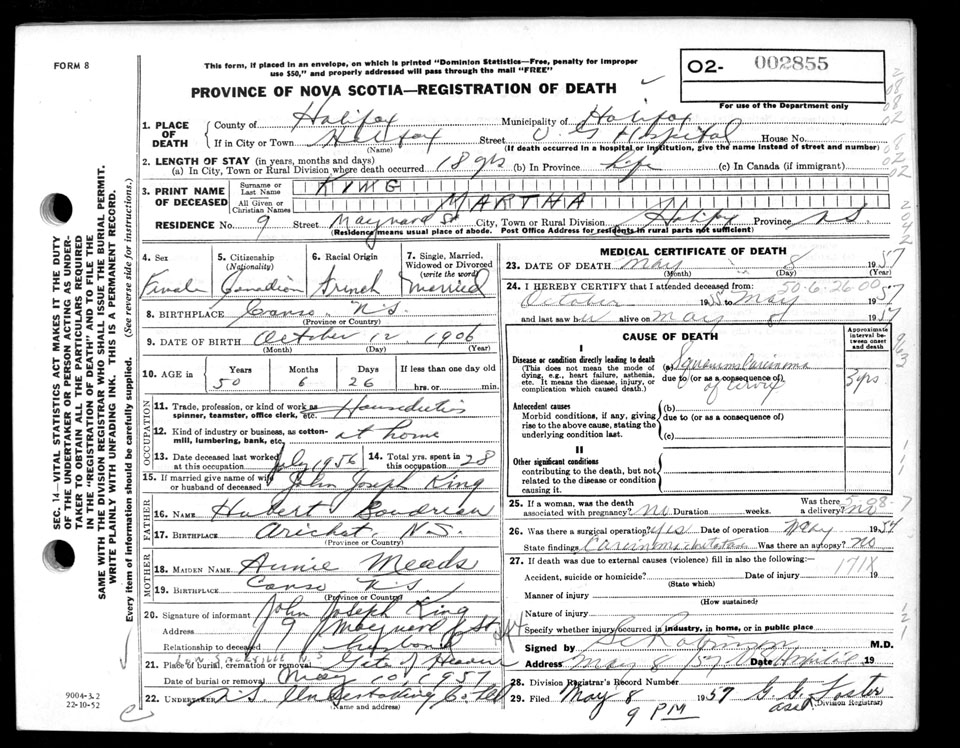 FORM 8
This form, if placed in an envelope, on which is printed "Dominion Statistics—Free, penalty for improper
use $50," and properly addressed will pass through the mail "FREE"
O2- 002855
For use of the Department only
PROVINCE OF NOVA SCOTIA—REGISTRATION OF DEATH
1. PLACE OF DEATH
County of Halifax Municipality of Halifax
If in City or Town Halifax Street V. G. Hospital House No.
(Name) (If death occurred in a hospital or institution, give the name instead of street and number)
2. LENGTH OF STAY (in years, months and days)
(a) In City, Town or Rural Division where death occurred 18 yrs (b) In Province Life (c) In Canada (if immigrant)
3. PRINT NAME OF DECEASED
Surname or Last Name KING
All Given or Christian Names MARTHA
RESIDENCE No. 9 Street Maynard St City, Town or Rural Division Halifax Province NS
(Residence means usual place of abode. Post Office Address for residents in rural parts not sufficient)
4. Sex Female
5. Citizenship (Nationality) Canadian
6. Racial Origin French
7. Single, Married, Widowed or Divorced (write the word) Married
8. BIRTHPLACE Canso N.S.
(Province or Country)
9. DATE OF BIRTH October 12 1906
(Month) (Day) (Year)
10. AGE in Years 50 Months 6 Days 26 If less than one day old
hrs. or min.
OCCUPATION
11. Trade, profession, or kind of work as spinner, teamster, office clerk, etc. Houseduties
12. Kind of industry or business, as cotton-mill, lumbering, bank, etc. at home
13. Date deceased last worked at this occupation July 1956
14. Total yrs. spent in this occupation 28
15. If married give name of wife or husband of deceased John Joseph King
FATHER
16. NAME Hubert Boudreau
17. BIRTHPLACE Arichat N.S.
(Province or Country)
MOTHER
18. MAIDEN NAME Annie Meads
19. BIRTHPLACE Canso N.S.
(Province or Country)
20. Signature of informant John Joseph King
Address 9 Maynard St
Relationship to deceased husband
21. Place of burial, cremation or removal Gate of Heaven
Date of burial or removal May 10, 1957
22. UNDERTAKER N.S. Undertaking Co Ltd
(Name and address)
MEDICAL CERTIFICATE OF DEATH
23. DATE OF DEATH May 8 1957
(Month) (Day) (Year)
24. I HEREBY CERTIFY that I attended deceased from:
50-6-26-00
October 1955 to May 1957
and last saw her alive on May 8 1957
CAUSE OF DEATH
Approximate interval between onset and death
I
Disease or condition directly leading to death
(This does not mean the mode of dying, e.g., heart failure, asthenia, etc. It means the disease, injury, or complication which caused death.)
(a) Squamous Carcinoma
due to (or as a consequence of)
of cervix
3 yrs
Antecedent causes
Morbid conditions, if any, giving rise to the above cause, stating the underlying condition last.
(b)
due to (or as a consequence of)
(c)
II
Other significant conditions
contributing to the death, but not related to the disease or condition causing it.
25. If a woman, was the death associated with pregnancy? No Duration weeks. Was there a delivery? No
26. Was there a surgical operation? yes Date of operation May 1957
State findings Was there an autopsy? No
27. If death was due to external causes (violence) fill in also the following:—
171X
Accident, suicide or homicide? Date of injury 19
(State which)
Manner of injury
(How sustained)
Nature of injury
Specify whether injury occurred in industry, in home, or in public place
Signed by M.D.
Address May 8/57 Date 19
28. Division Registrar's Record Number
29. Filed May 8 1957 G. S. Foster
9 PM Division Registrar)
SEC. 14—VITAL STATISTICS ACT MAKES IT THE DUTY
OF THE UNDERTAKER OR PERSON ACTING AS UNDER-
TAKER TO OBTAIN ALL THE PARTICULARS REQUIRED
IN THE "REGISTRATION OF DEATH" AND TO FILE THE
SAME WITH THE DIVISION REGISTRAR WHO SHALL ISSUE THE BURIAL PERMIT.
WRITE PLAINLY WITH UNFADING INK. THIS IS A PERMANENT RECORD.
Every item of information should be carefully supplied. (See reverse side for instructions.)
9004-3.2
22-10-52